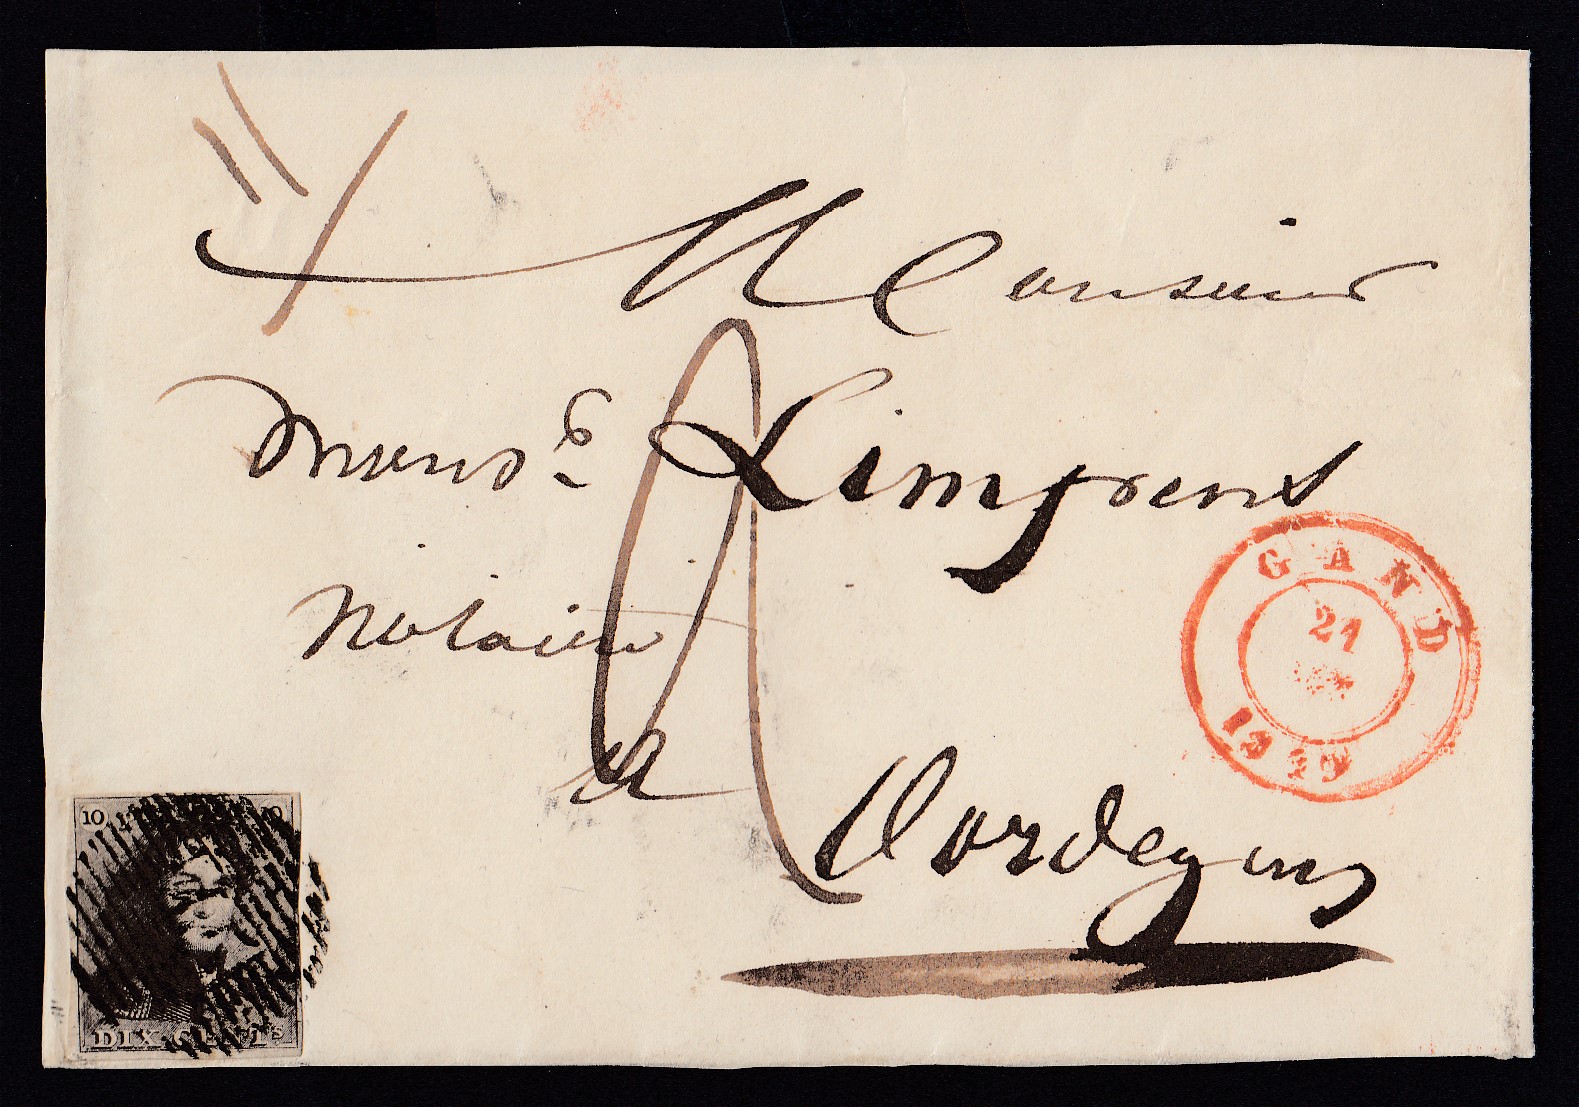 Monsieur
Limpens
Notaire
a
Oordegem
GAND
21
1849
10
10
DIX CENTS